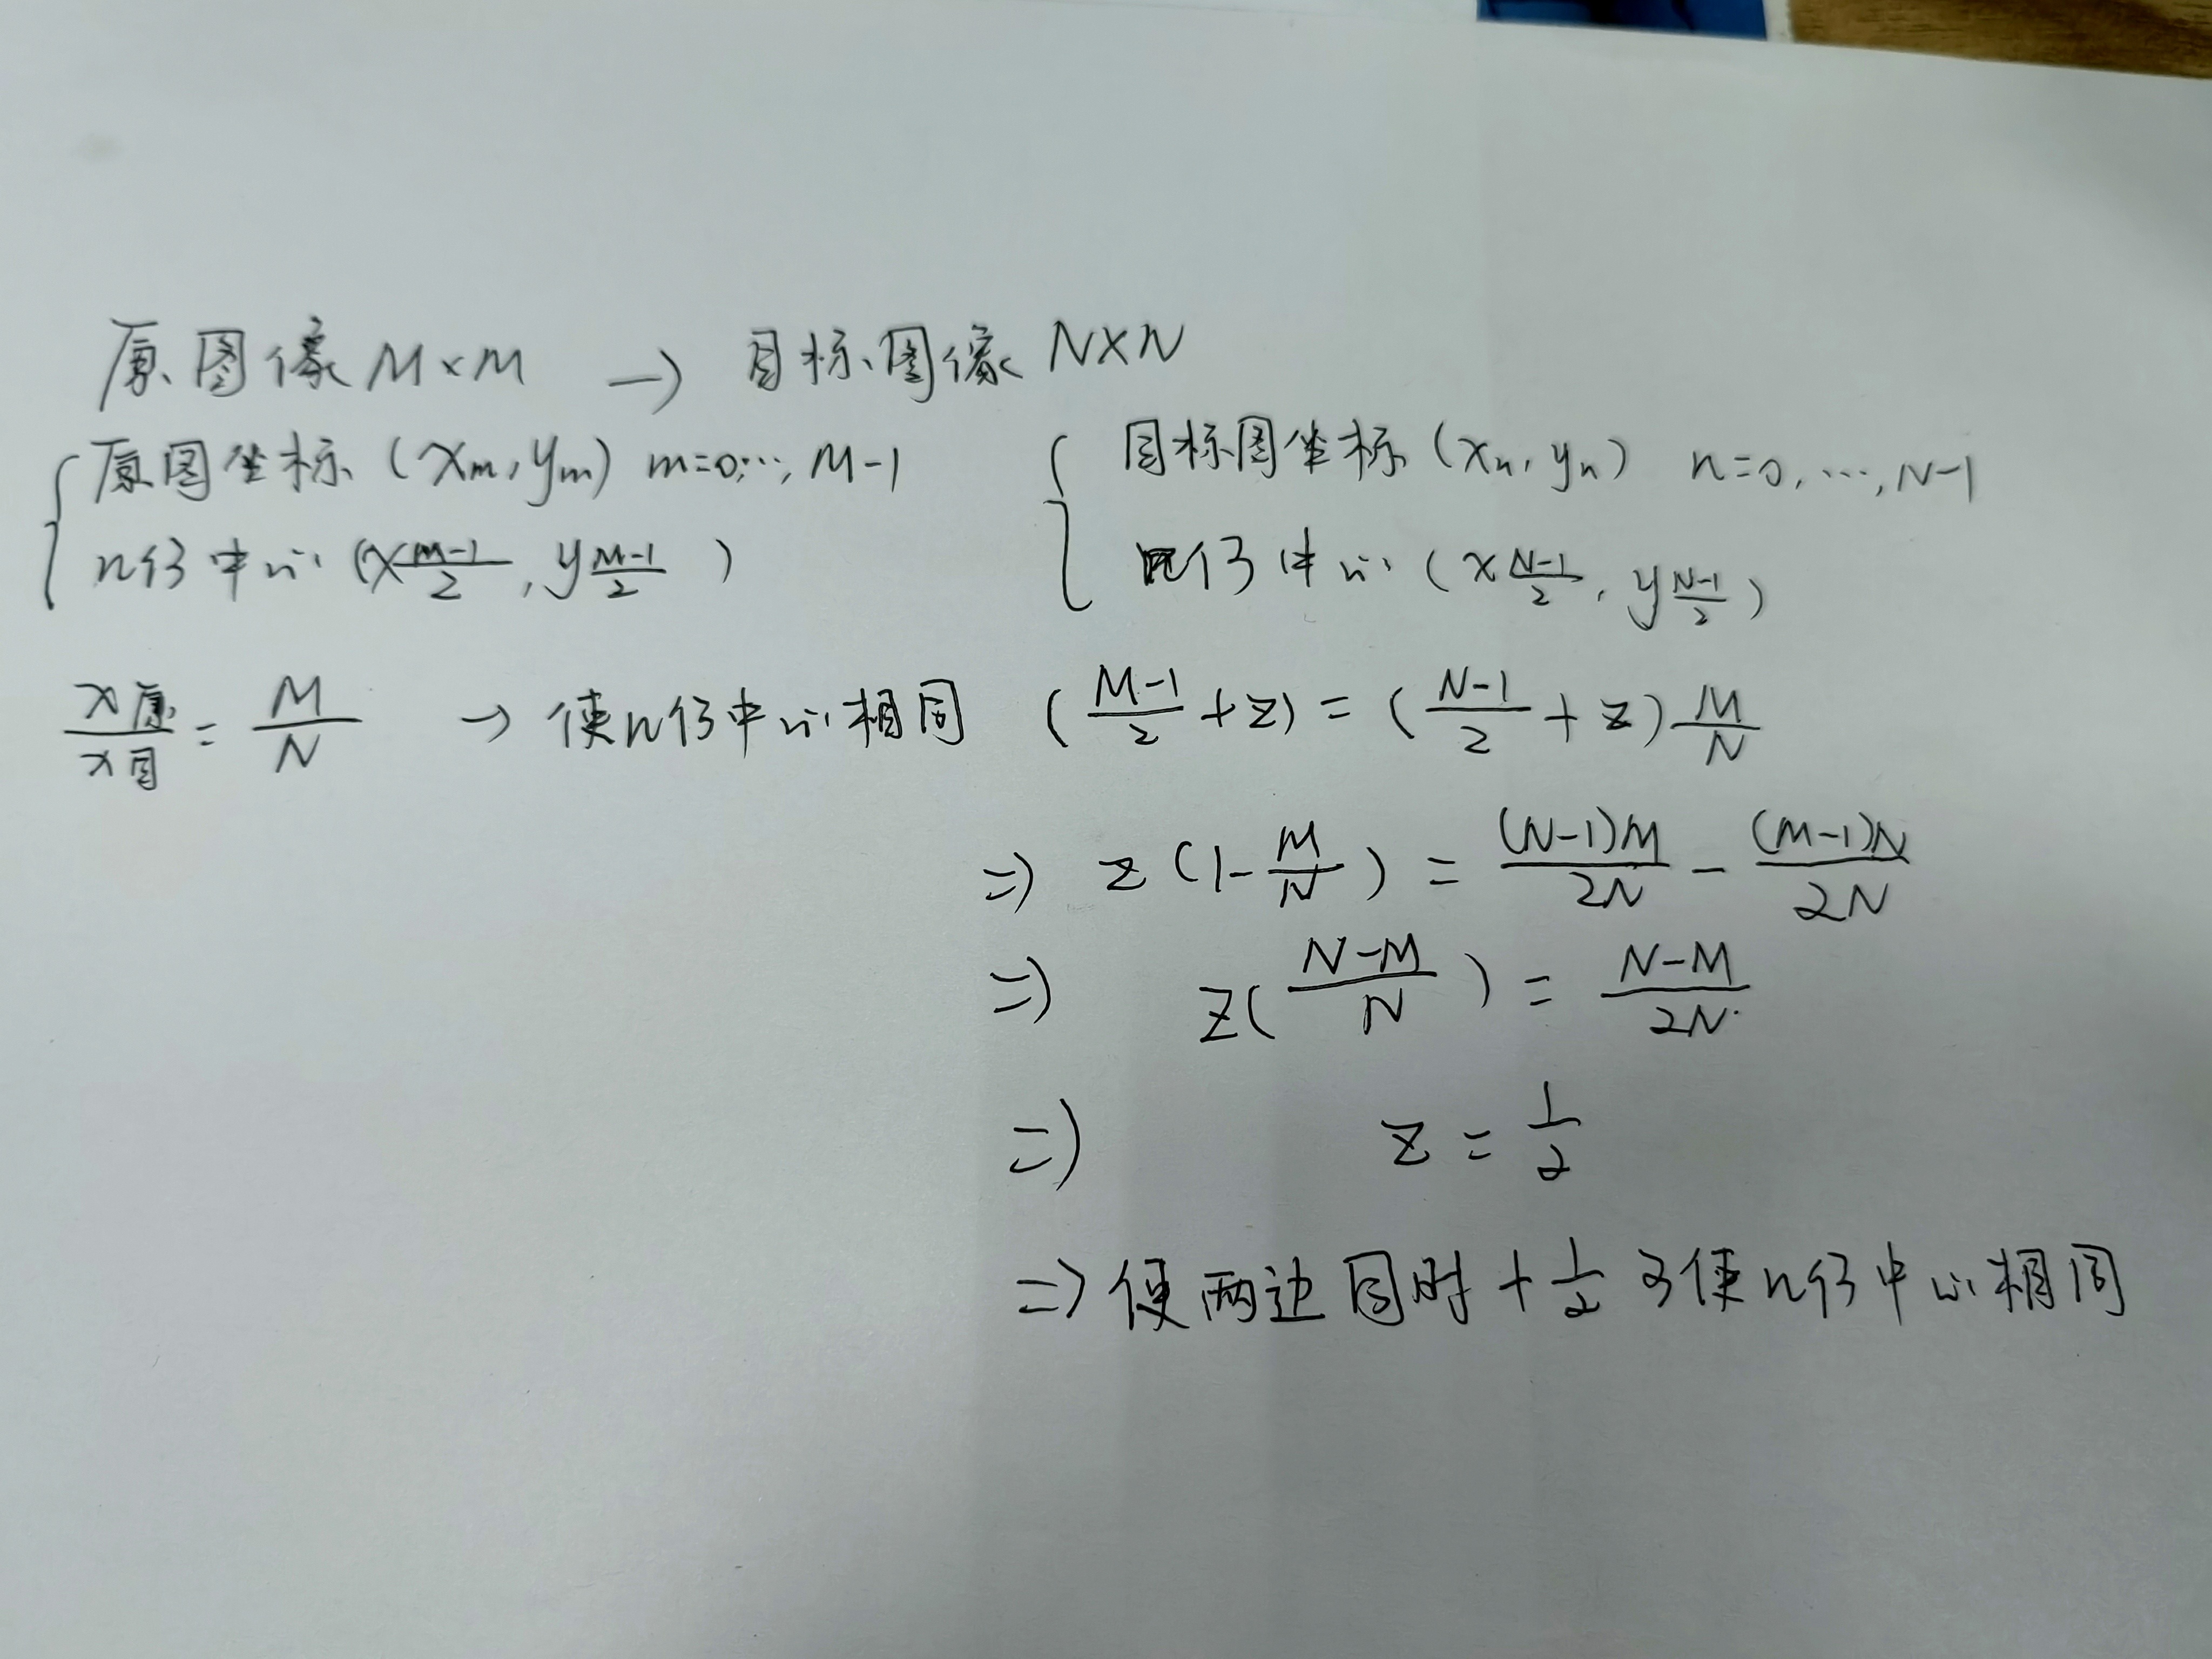 原图像 M×M → 目标图像 N×N
原图坐标 (x_m, y_m) m=0,…, M-1
几何中心 (x_{\frac{M-1}{2}}, y_{\frac{M-1}{2}})
目标图坐标 (x_n, y_n) n=0, …, N-1
几何中心 (x_{\frac{N-1}{2}}, y_{\frac{N-1}{2}})
\frac{x原}{x目} = \frac{M}{N} → 使几何中心相同 (\frac{M-1}{2}+z) = (\frac{N-1}{2}+z)\frac{M}{N}
⇒ z(1-\frac{M}{N}) = \frac{(N-1)M}{2N} - \frac{(M-1)N}{2N}
⇒ z(\frac{N-M}{N}) = \frac{N-M}{2N}
⇒ z = \frac{1}{2}
⇒ 使两边同时+\frac{1}{2}可使几何中心相同